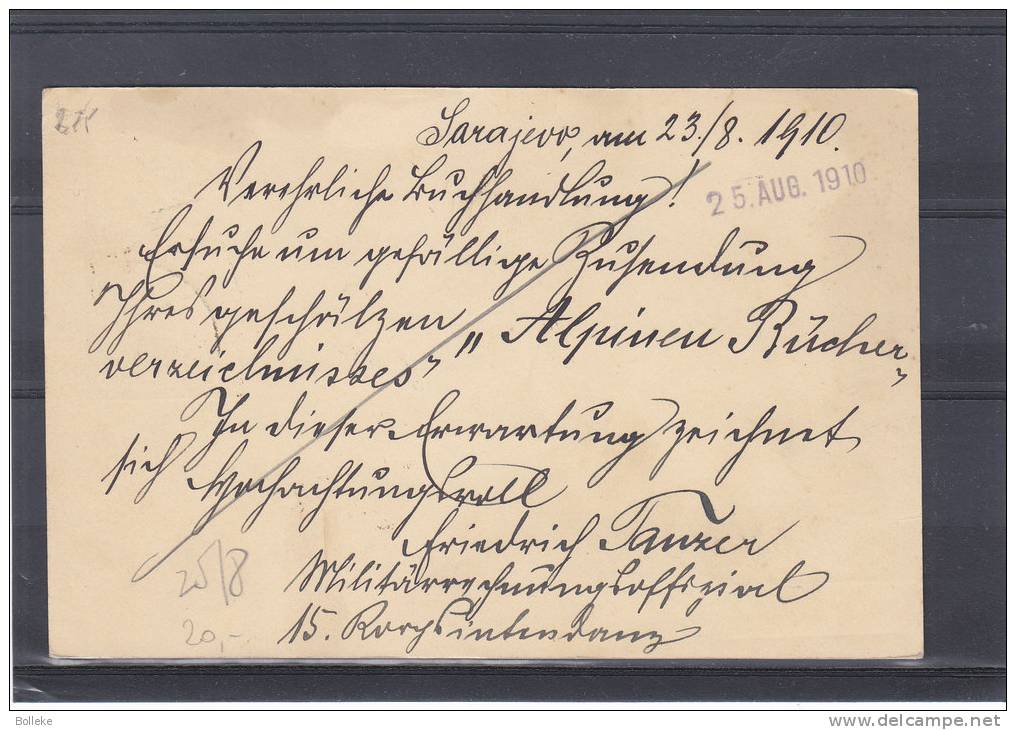 Sarajevo, am 23./8. 1910.
25. AUG. 1910
Verehrliche Buchhandlung!
Ersuche um gefällige Zusendung
Ihres geschätzen
verzeichnisses „ Alpinen Bücher "
In dieser Erwartung zeichnet
sich Hochachtungsvoll
Friedrich Tanzer
Militärrechnungsoffizial
15. Korpsintendanz
25/8
20,-
Bolleke
©delcampe.net